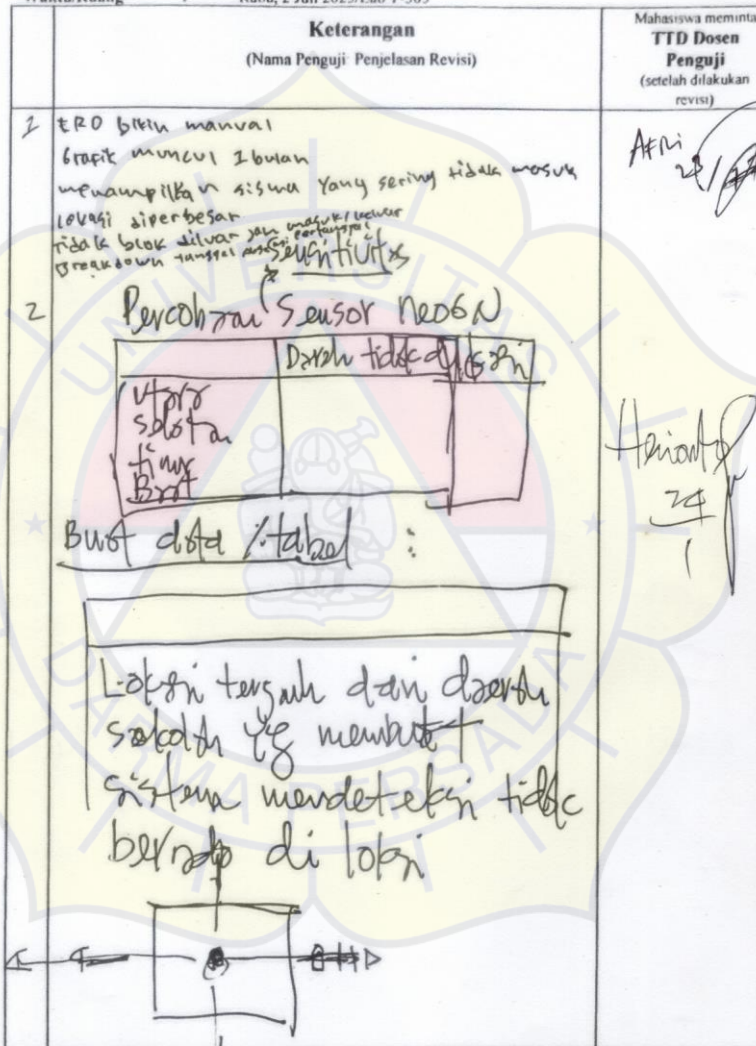 Rabu, 2 Juli 2025/Lab
Keterangan
(Nama Penguji: Penjelasan Revisi)
Mahasiswa meminta
TTD Dosen
Penguji
(setelah dilakukan
revisi)
1 ERD bikin manual
Grafik muncul 1 bulan
menampilkan siswa yang sering tidak masuk
Lokasi diperbesar
tidak blok diluar jam masuk/keluar
Breakdown tanggal
Sensitivitas
2 Percobaan Sensor neo6N
Daerah tidak di lokasi
Utara
selatan
timur
Barat
Buat data / tabel :
Lokasi tengah dari daerah
sekolah yg membuat
sistem mendeteksi tidak
berada di lokasi
AFRI
Herianto
24
1
UNIVERSITAS
DARMA PERSADA